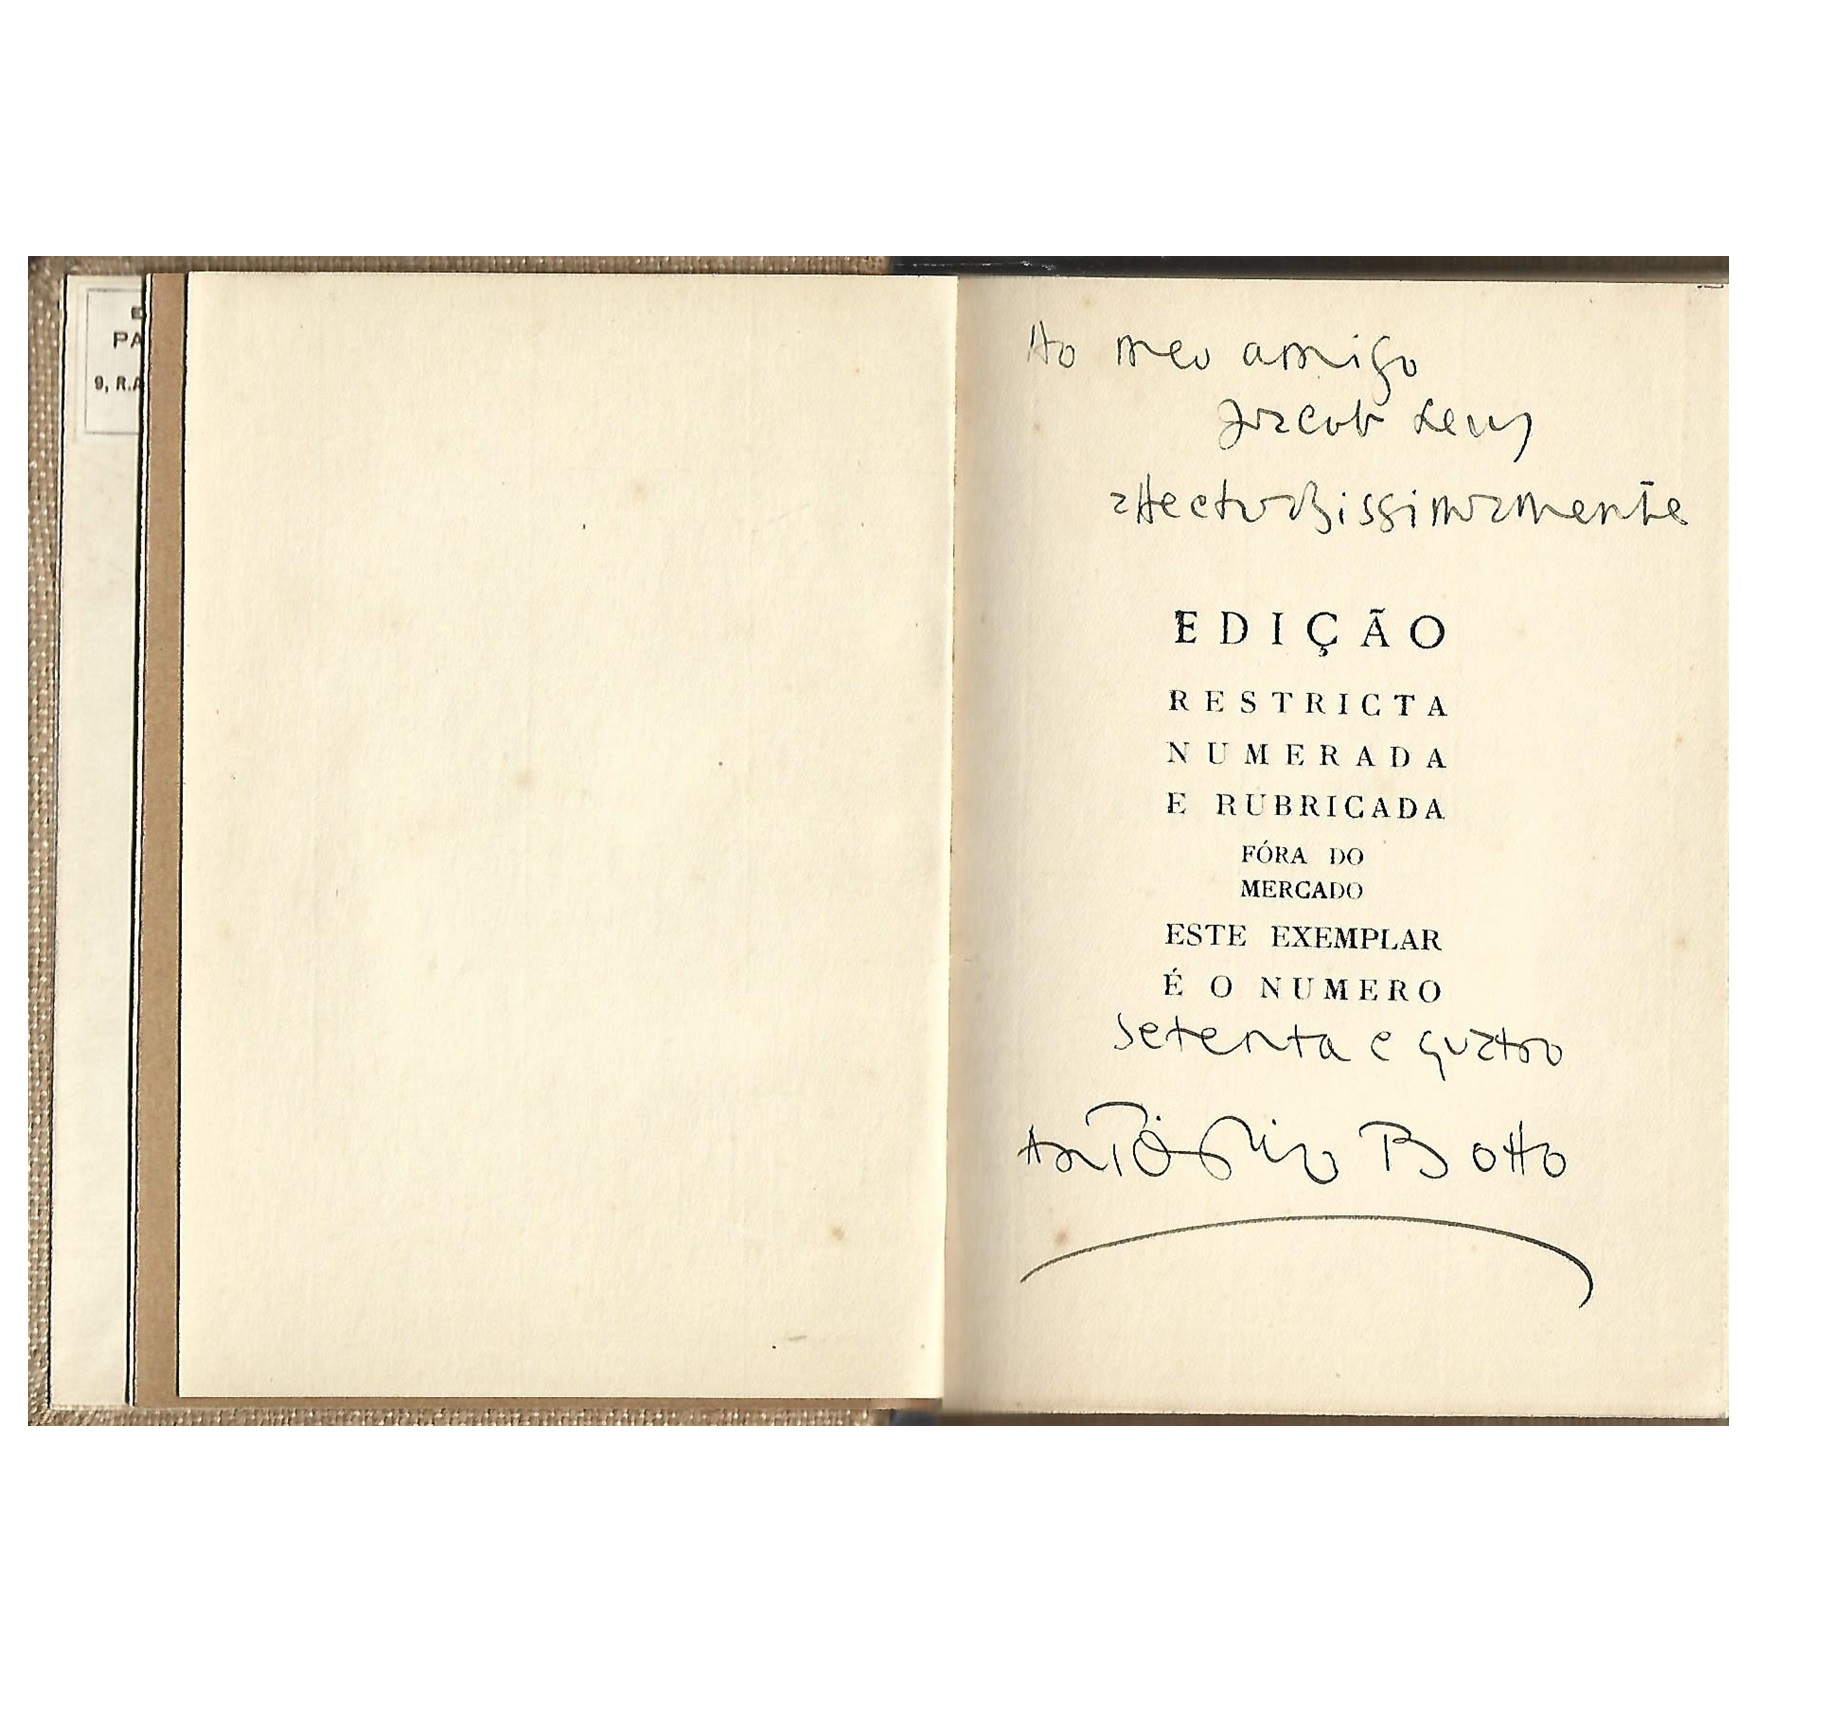 PA
9, R.A
Ao meu amigo
Jacob Levy
affectuosissimamente
EDIÇÃO
RESTRICTA
NUMERADA
E RUBRICADA
FÓRA DO
MERCADO
ESTE EXEMPLAR
É O NUMERO
setenta e quatro
António Botto